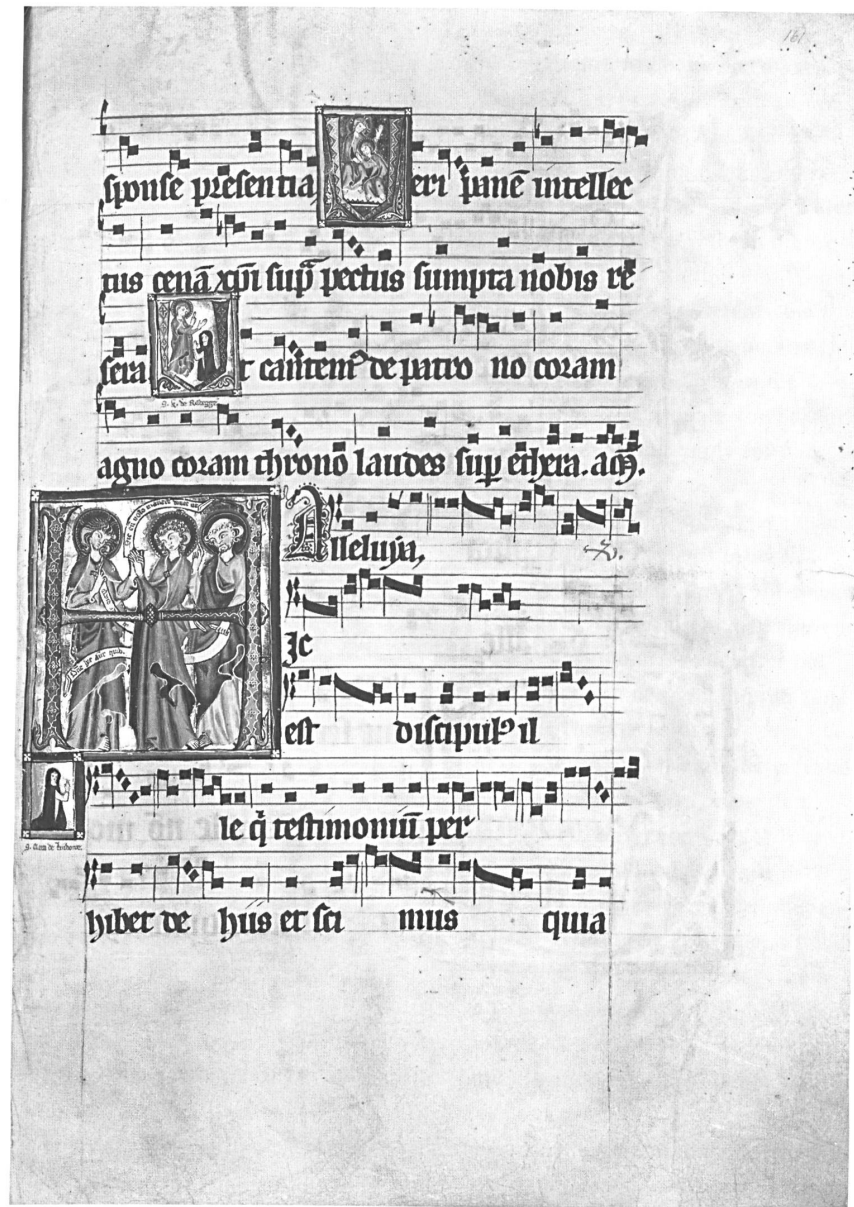 sponse presentia eri panē intellec
tus cenā xp̄i sup̄ pectus sumpta nobis re
sera t cantemꝰ de patro no coram
agno coram throno laudes sup̄ ethera.
Alleluja,
Jc
est discipulꝰ il
le q̄ testimoniū per
hibet de hiis et sci mus quia